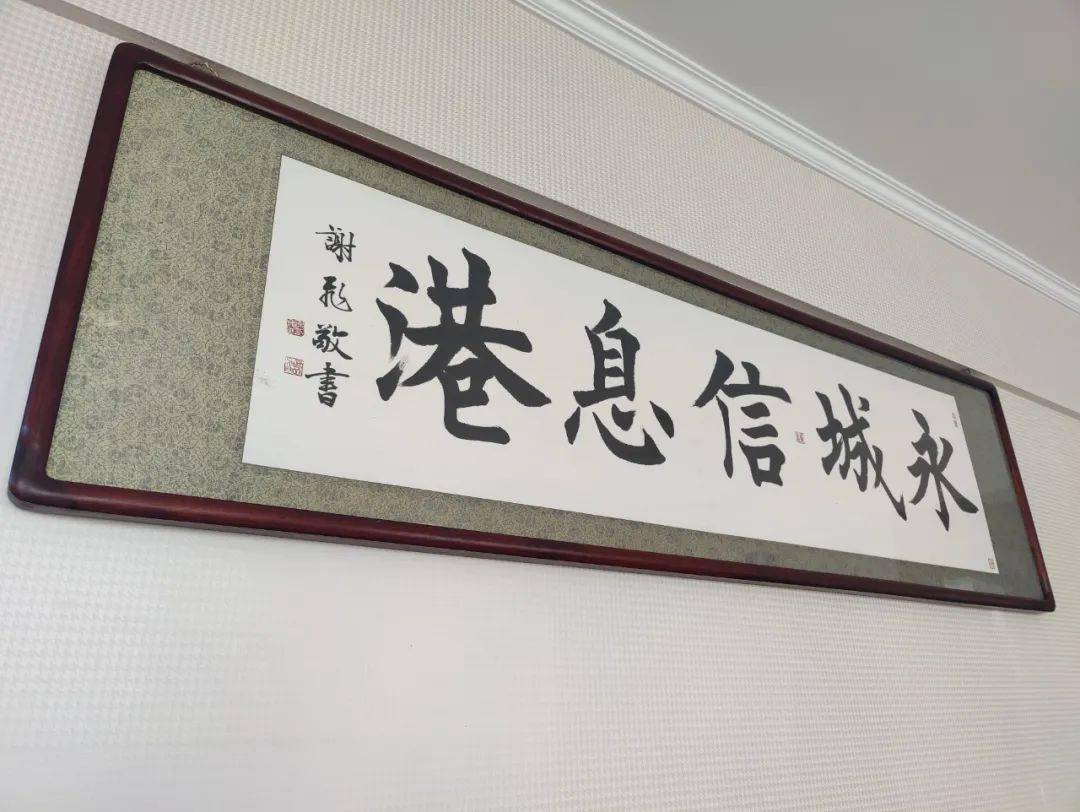 永城信息港
謝飛敬書